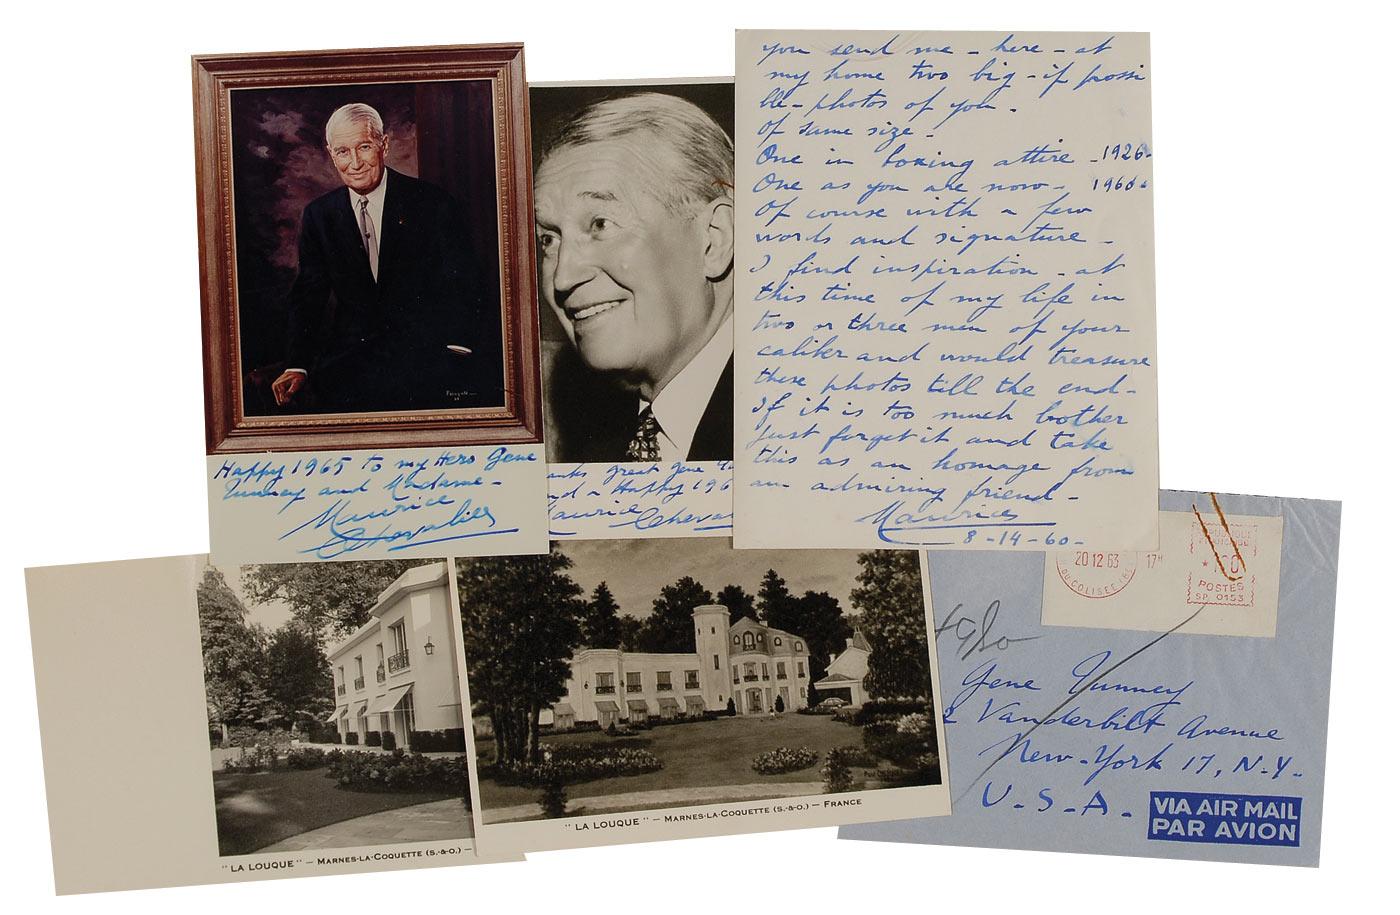 Happy 1965 to my Hero Gene
Tunney and Madame -
Maurice
Chevalier
anks great Gene
nd a Happy 196
aurice Cheval
you send me - here - at
my home two big - if possi
ble - photos of you -
of same size -
One in boxing attire - 1926 -
One as you are now - 1960 -
Of course with a few
words and signature -
I find inspiration - at
this time of my life in
two or three men of your
caliber and would treasure
these photos till the end -
If it is too much bother
just forget it and take
this as an homage from
an admiring friend -
Maurice
8-14-60-
"LA LOUQUE" — MARNES-LA-COQUETTE (S.-&-O.) —
"LA LOUQUE" — MARNES-LA-COQUETTE (S.-&-O.) — FRANCE
20 12 63
17H
DU COLISEE
POSTES
SP. 0153
Gene Tunney
2 Vanderbilt Avenue
New-York 17, N.Y.
U.S.A.
VIA AIR MAIL
PAR AVION